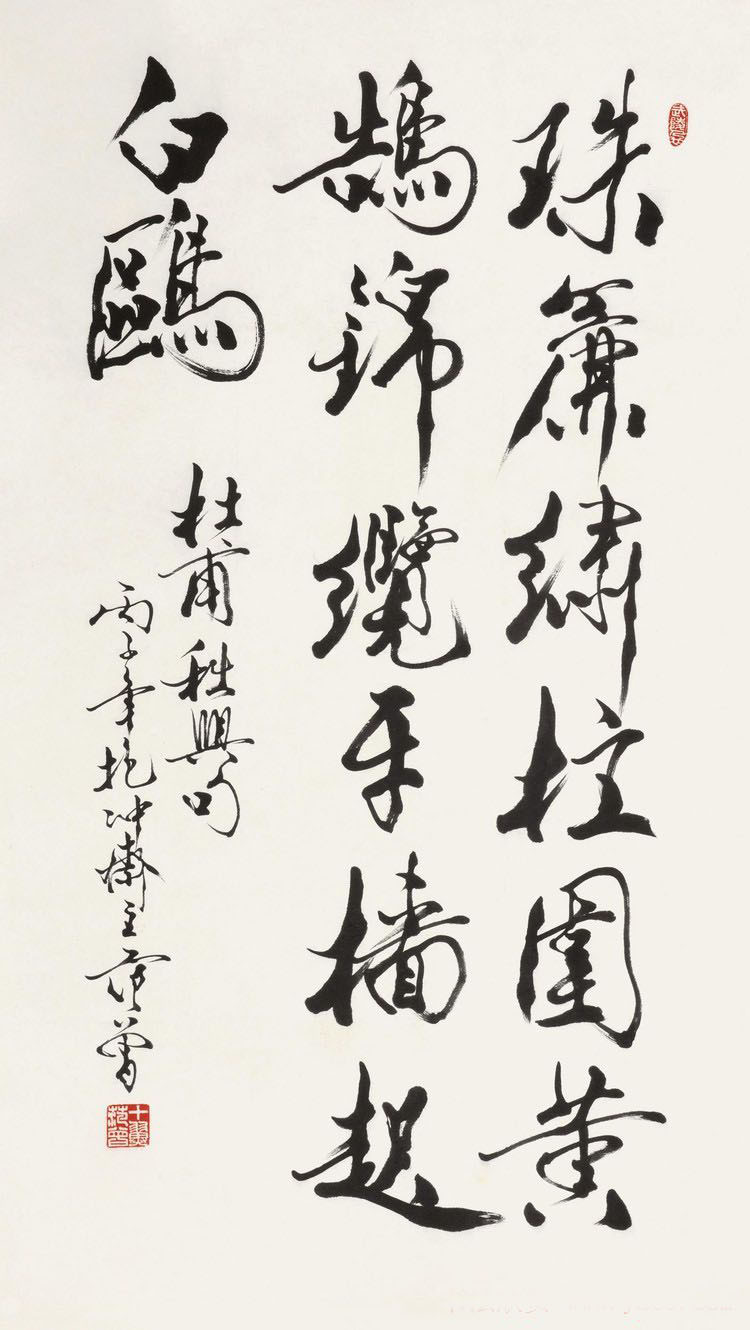 珠簾繡柱圍黃
鵠錦纜牙檣起
白鷗
杜甫秋興句
丙子年抱冲齋主范曾
十翼范曾